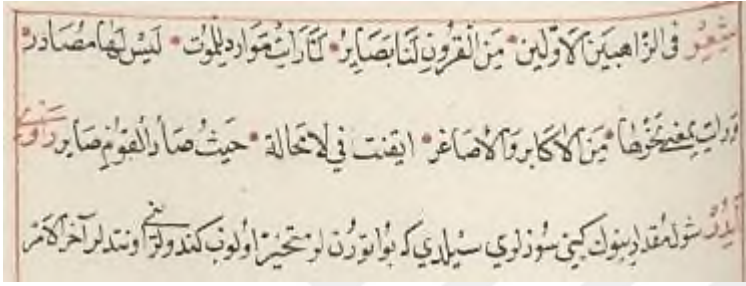 شِعِرْ فى الزّاهبينَ الاَوّلين • مِنَ الْقُرُونِ لَنَا بَصَايِرُ • لمّا رَاتْ مَوَاردَ للموت • لَيْسَ لَهَا مصَادرُ
وَرات بمعنى نحوَها • مِنَ الاكابر وَالاصَاغر • ايقنت فى لامحالة • حيثُ صَار القَوْمِ صَاير راوى
ايدُرْ شول مقدار بونك كبى سوزلرى سيلدي كه بو اوتورن لر متحيّر اولوب كندولرنى اونتدلر آخر الامر